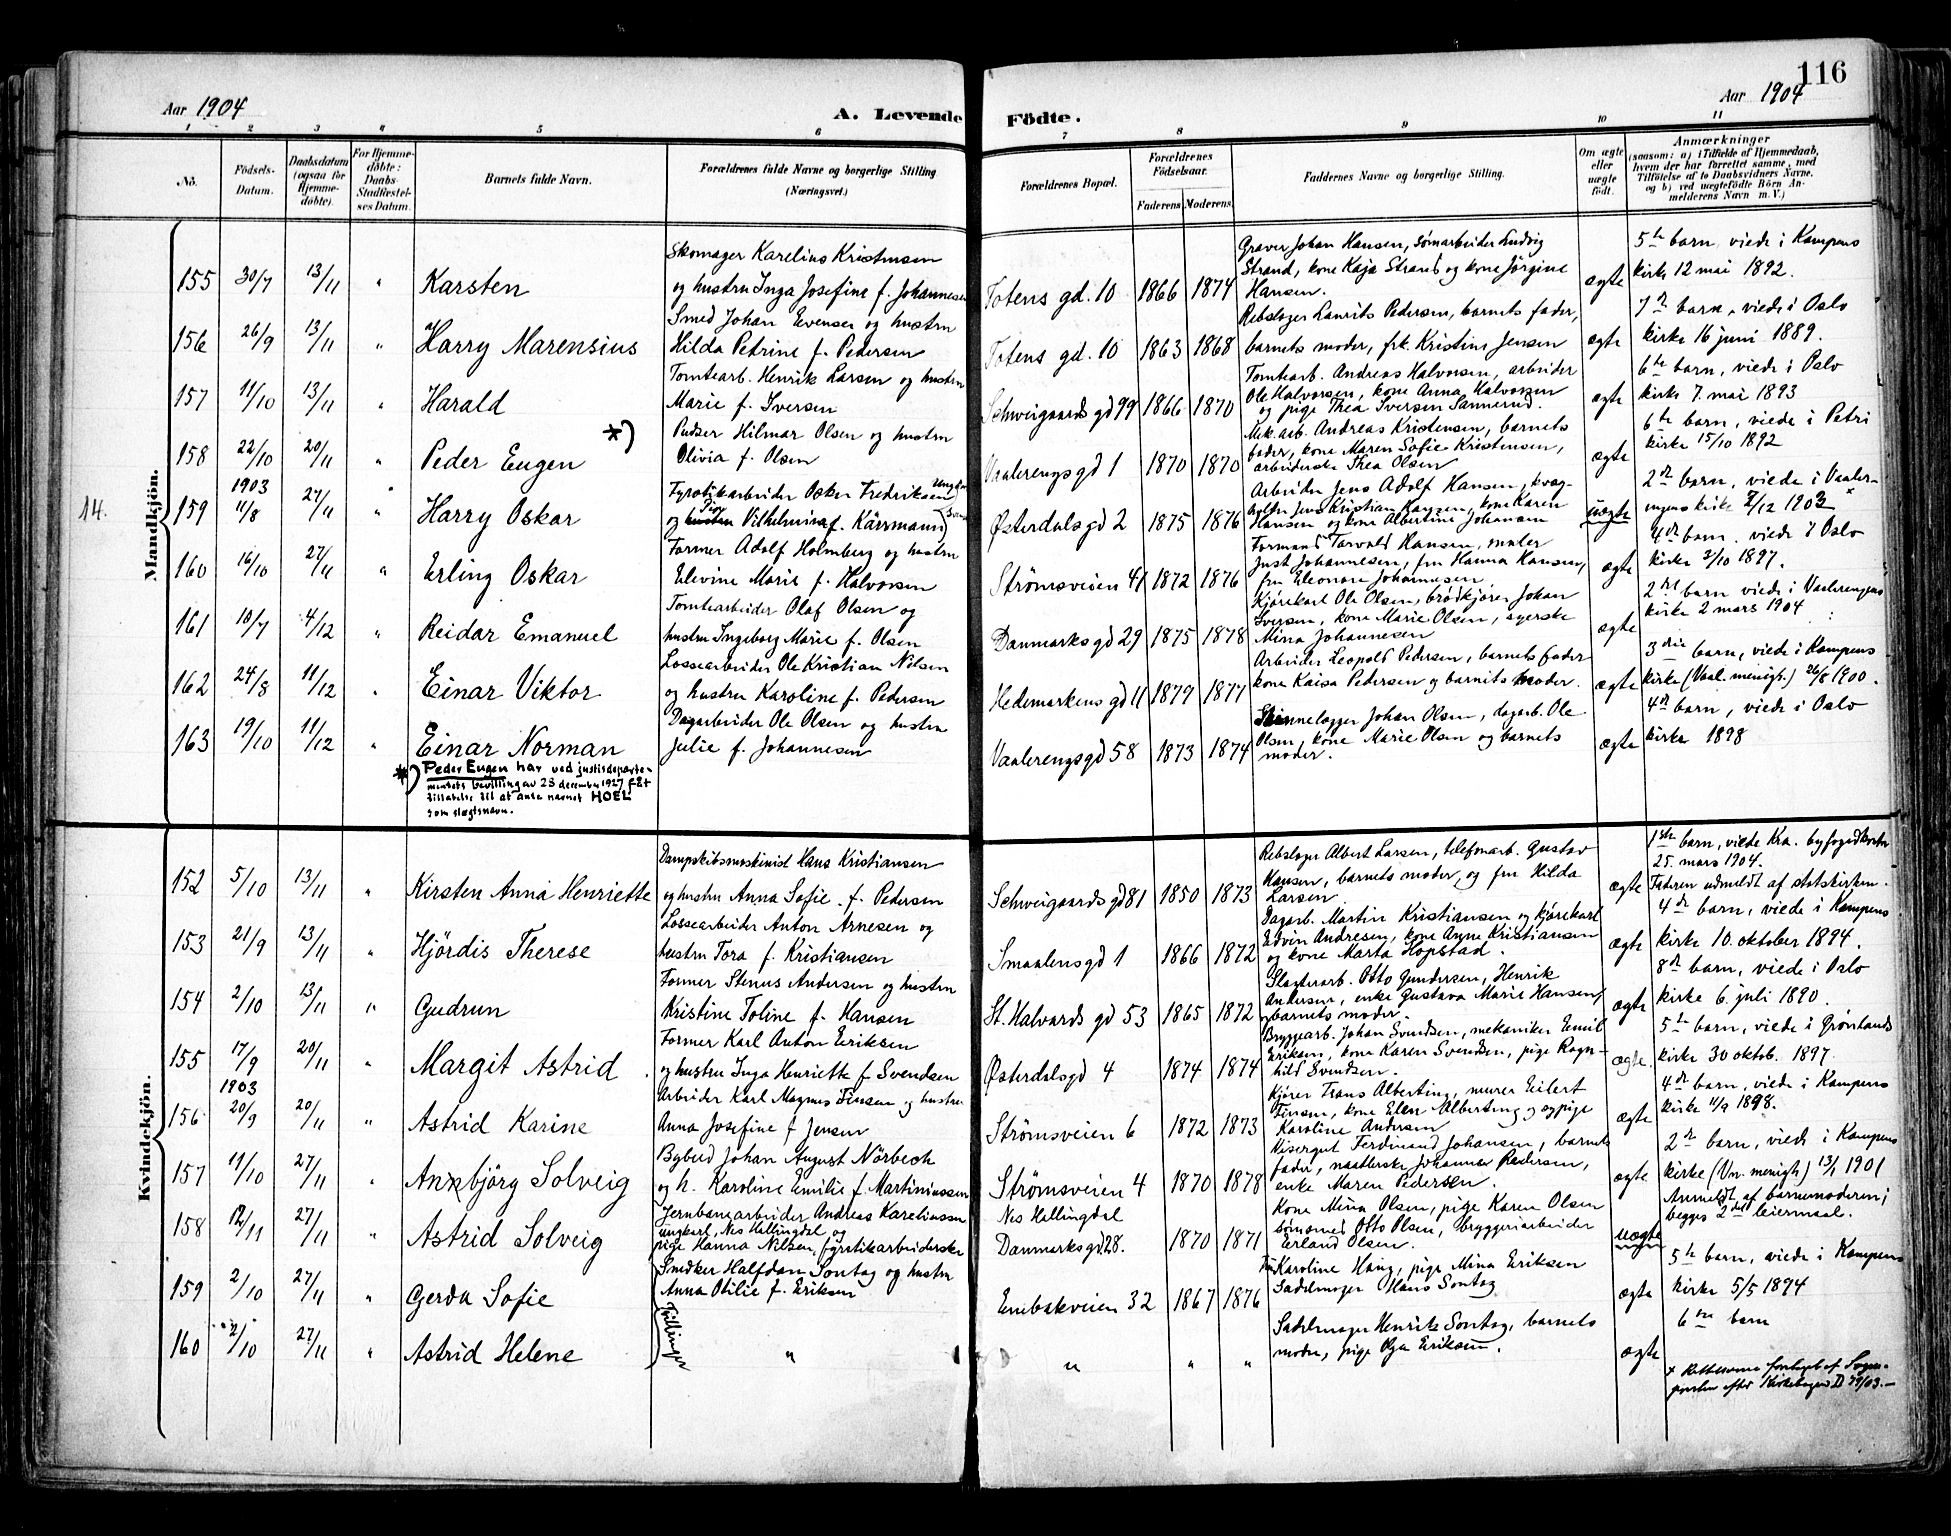 116
Aar 1904
A. Levende Födte.
Aar 1904
1 2 3 4 5 6 7 8 9 10 11
Nô.
Födsels-
Datum.
Daabsdatum
(ogsaa for
Hjemme-
döbte).
For Hjemme-
döbte:
Daabs-
Stadfæstel-
ses Datum.
Barnets fulde Navn.
Forældrenes fulde Navne og borgerlige Stilling
(Næringsvei.)
Forældrenes Bopæl.
Forældrenes
Födselsaar.
Faderens. Moderens.
Faddernes Navne og borgerlige Stilling.
Om ægte
eller
uægte
födt.
Anmærkninger
(saasom: a) i Tilfælde af Hjemmedaab,
hvem der har forrettet samme, med
Tilföielse af to Daabsvidners Navne,
og b) ved uægtefödte Börn An-
melderens Navn m. V.)
14.
Mandkjön.
155 30/7 13/11 " Karsten
Skomager Karelius Kristensen
og hustru Inga Josefine f. Johannesen
Totens gd. 10 1866 1874
Graver Johan Hansen, sømarbeider Ludvig
Strand, kone Kaja Strand og kone Jørgine
Hansen.
ægte
5te barn, viede i Kampens
kirke 12 mai 1892.
156 26/9 13/11 " Harry Marensius
Smed Johan Evensen og hustru
Hilda Petrine f. Pedersen
Totens gd. 10 1863 1868
Rebslager Laurits Pedersen, barnets fader,
barnets moder, frk. Kristine Jensen
ægte
7de barn, viede i Oslo
kirke 16 juni 1889.
157 11/10 13/11 " Harald
Tomtearb. Henrik Larsen og hustru
Marie f. Iversen
Schweigaards gd 99 1866 1870
Tomtearb. Andreas Halvorsen, arbeider
Ole Halvorsen, kone Anna Halvorsen
og pige Thea Iversen Sannerud.
ægte
6te barn, viede i Oslo
kirke 7. mai 1893
158 22/10 20/11 " Peder Eugen *)
Pudser Hilmar Olsen og hustru
Olivia f. Olsen
Vaalerengsgd 1 1870 1870
Mek. arb. Andreas Kristensen, barnets
fader, kone Maren Sofie Kristensen,
arbeiderske Thea Olsen
ægte
6te barn, viede i Petri
kirke 15/10 1892
159 1903 11/8 27/11 " Harry Oskar
Fyrstikarbeider Oskar Fredriksen
og pige Vilhelmina f. Kärrmann
Østerdalsgd 2 1875 1876
Arbeider Jens Adolf Hansen,
Jens Kristian Hansen, kone Karen
Hansen og kone Albertine Johansen
uægte
2det barn, viede i Vaaler-
engens kirke 2/12 1903 ×
160 16/10 27/11 " Erling Oskar
Former Adolf Holmberg og hustru
Elevine Marie f. Halvorsen
Strömsveien 41 1872 1876
Formand Torvald Hansen, maler
Just Johannesen, fru Hanna Hansen,
fru Eleonore Johannesen
ægte
4de barn. viede i Oslo
kirke 2/10 1897.
161 10/7 4/12 " Reidar Emanuel
Tomtearbeider Olaf Olsen og
hustru Ingeborg Marie f. Olsen
Danmarks gd 29 1875 1878
Kjørekarl Ole Olsen, brødkjører Johan
Iversen, kone Marie Olsen, syerske
Mina Johannesen
ægte
2det barn viede i Vaalerengens
kirke 2 mars 1904
162 24/8 11/12 " Einar Viktor
Lossearbeider Ole Kristian Nilsen
og hustru Karoline f. Pedersen
Hedemarkens gd 11 1879 1877
Arbeider Leopold Pedersen, barnets fader
kone Kaisa Pedersen og barnets moder.
ægte
3die barn, viede i Kampens
kirke (Vaal. menigh.) 26/8 1900.
163 19/10 11/12 " Einar Norman
Dagarbeider Ole Olsen og hustru
Julie f. Johannesen
Vaalerengsgd 58 1873 1874
Skinnelægger Johan Olsen, dagarb. Ole
Olsen, kone Marie Olsen og barnets
moder.
ægte
4de barn, viede i Oslo
kirke 1898
*) Peder Eugen har ved justisdeparte-
mentets bevilling av 23 december 1927 fåt
tillatelse til at anta navnet HOEL
som slegtsnavn.
Kvindekjön.
152 5/10 13/11 " Kirsten Anna Henriette
Dampskibsmaskinist Hans Kristiansen
og hustru Anna Sofie f. Pedersen
Schweigaards gd 81 1850 1873
Rebslager Albert Larsen, telefonarb. Gustav
Hansen, barnets moder, og fru Hilda
Larsen
ægte
1ste barn, viede Kra. byfogedkontor
25. mars 1904.
Faderen udmeldt af statskirken.
153 21/9 13/11 " Hjördis Therese
Lossearbeider Anton Arnesen og
hustru Tora f. Kristiansen
Smaalensgd 1 1866 1872
Dagarb. Martin Kristiansen og kjørekarl
Edvin Andresen, kone Anne Kristiansen
og kone Marta Hopstad.
ægte
4de barn, viede i Kampens
kirke 10. oktober 1894.
154 2/10 13/11 " Gudrun
Former Stenus Andersen og hustru
Kristine Toline f. Hansen
St. Halvards gd 53 1865 1872
Slagterarb. Otto Gundersen, Henrik
Andersen, enke Gustava Marie Hansen,
og barnets moder.
ægte
8de barn, viede i Oslo
kirke 6. juli 1890.
155 17/9 20/11 " Margit Astrid
Former Karl Anton Eriksen
og hustru Inga Henriette f. Svendsen
Østerdalsgd 4 1874 1874
Bryggearb. Johan Svendsen, mekaniker Emil
Eriksen, kone Karen Svendsen, pige Ragn-
hild Svendsen.
ægte.
5te barn, viede i Grønlands
kirke 30 oktob. 1897.
156 1903 20/9 20/11 " Astrid Karine
Arbeider Karl Magnus Finsen og hustru
Anna Josefine f Jensen
Strömsveien 6 1872 1873
Kjører Frans Alberting, murer Eilert
Finsen, kone Elen Alberting og pige
Karoline Andersen
ægte
4de barn, viede i Kampens
kirke 11/9 1898.
157 11/10 27/11 " Annbjörg Solveig
Bybud Johan August Nörbech
og h. Karoline Emilie f. Martiniussen
Strömsveien 4 1870 1878
Visergut Ferdinand Johansen, barnets
fader, naatlerske Johanna Pedersen,
enke Maren Pedersen.
ægte
2det barn, viede i Kampens
kirke (Vaal. menigh.) 13/1 1901
158 12/11 27/11 " Astrid Solveig
Jernbanearbeider Andreas Kareliussen
ungkarl, Nes Hallingdal og
pige Hanna Nilsen, fyrstikarbeiderske
Nes Hallingdal
Danmarksgd 28. 1870 1871
Kone Mina Olsen, pige Karen Olsen
sømand Otto Olsen, bryggeriarbeider
Erland Olsen.
uægte
Anmeldt af barnemoderen;
begges 2det leiermaal.
159 2/10 27/11 " Gerda Sofie
Snedker Halfdan Sontag og hustru
Anna Otilie f. Eriksen
Enebakveien 32 1867 1876
Fru Karoline Haug, pige Mina Eriksen
Sadelmager Hans Sontag
ægte
5te barn, viede i Kampens
kirke 5/5 1894
160 2/10 27/11 " Astrid Helene
Tvillinger
" " " "
Sadelmager Henrik Sontag, barnets
moder, pige Olga Eriksen.
ægte
6te barn
× Rettelserne foretaget af Sogne-
presten efter Kirkebogen D 79/03.—